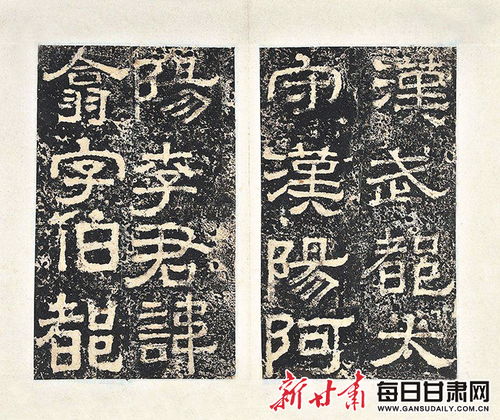 漢武都太
守漢陽阿
陽李君諱
翕字伯都
新甘肃 每日甘肃网
WWW.GANSUDAILY.COM.CN